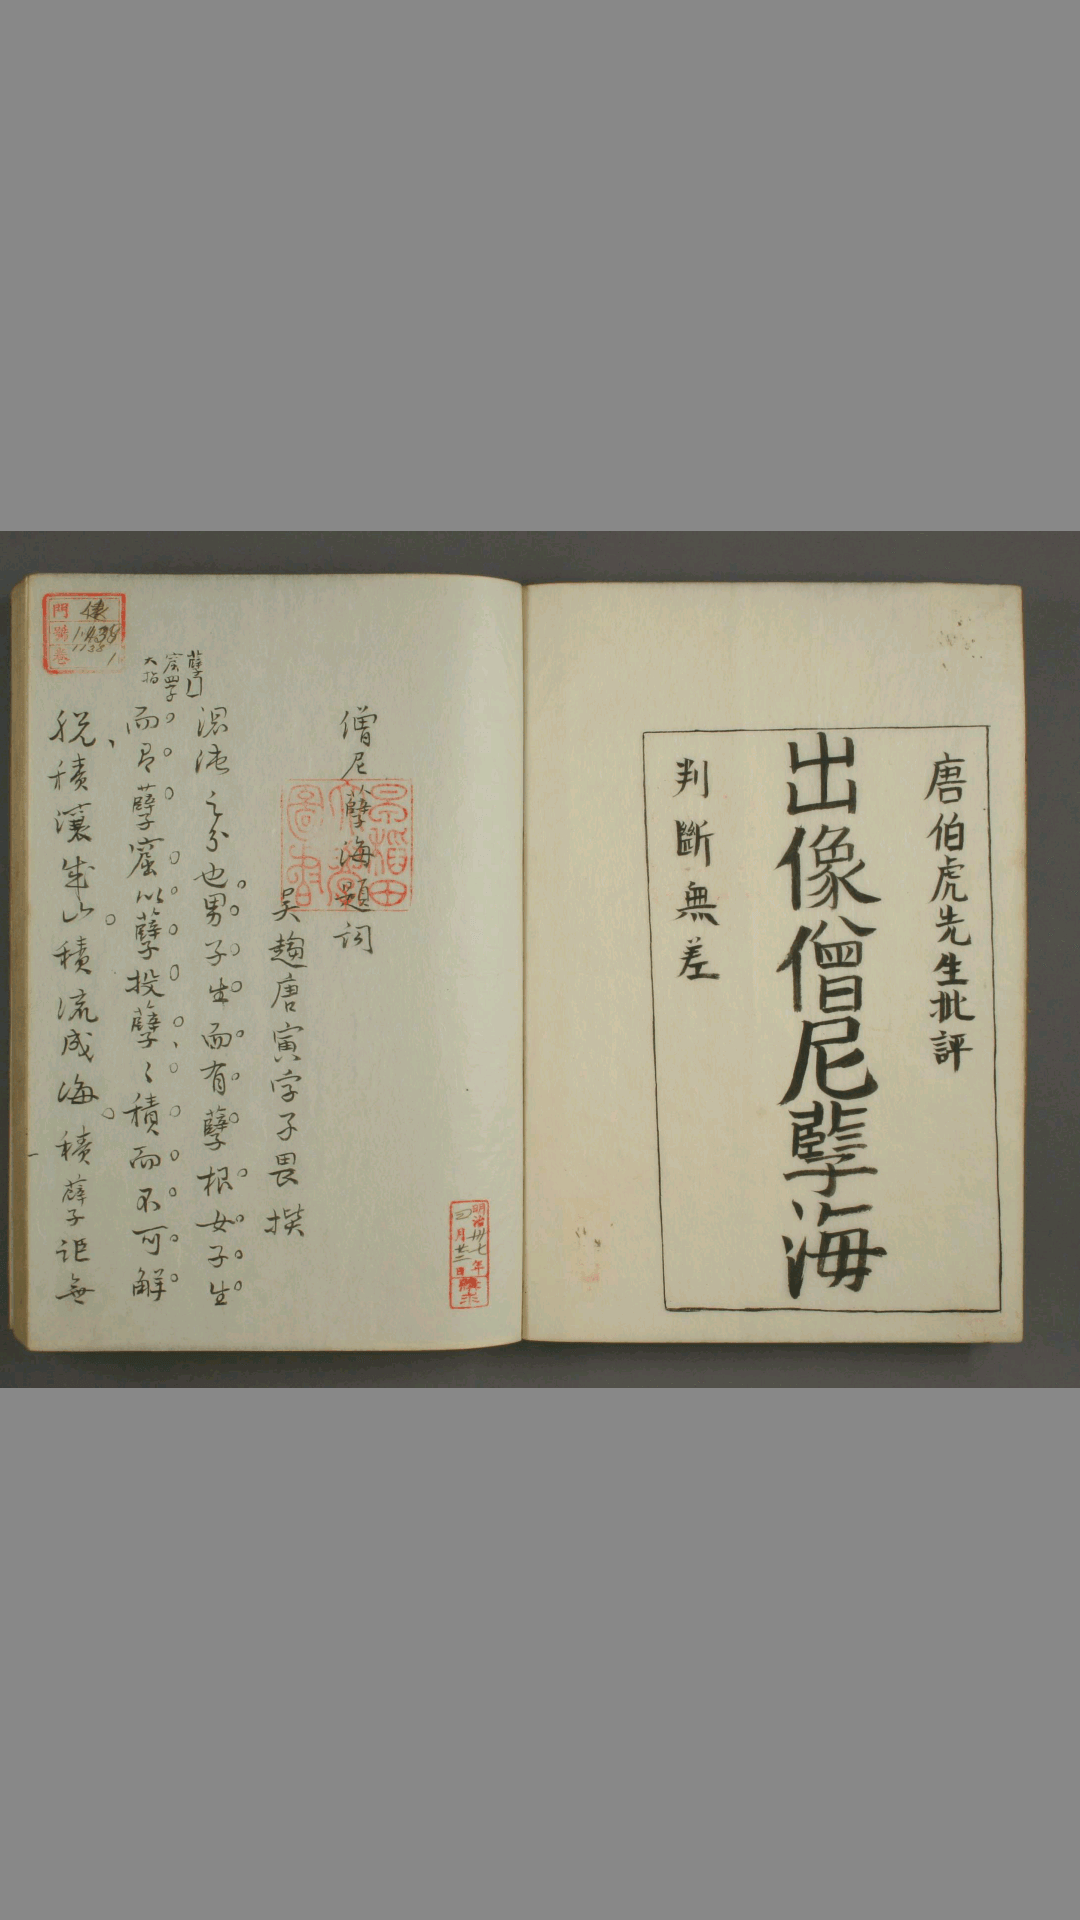 唐伯虎先生批評
出像僧尼孽海
判斷無差
僧尼孽海題詞
吳趨唐寅字子畏撰
混沌之分也男子生而有孽根女子生
而具孽窟以孽投孽〻積而不可解
脫積瀼成山積流成海積孽詎無
門號卷
1
明治卅七年
三月廿三日
早稻田
圖書